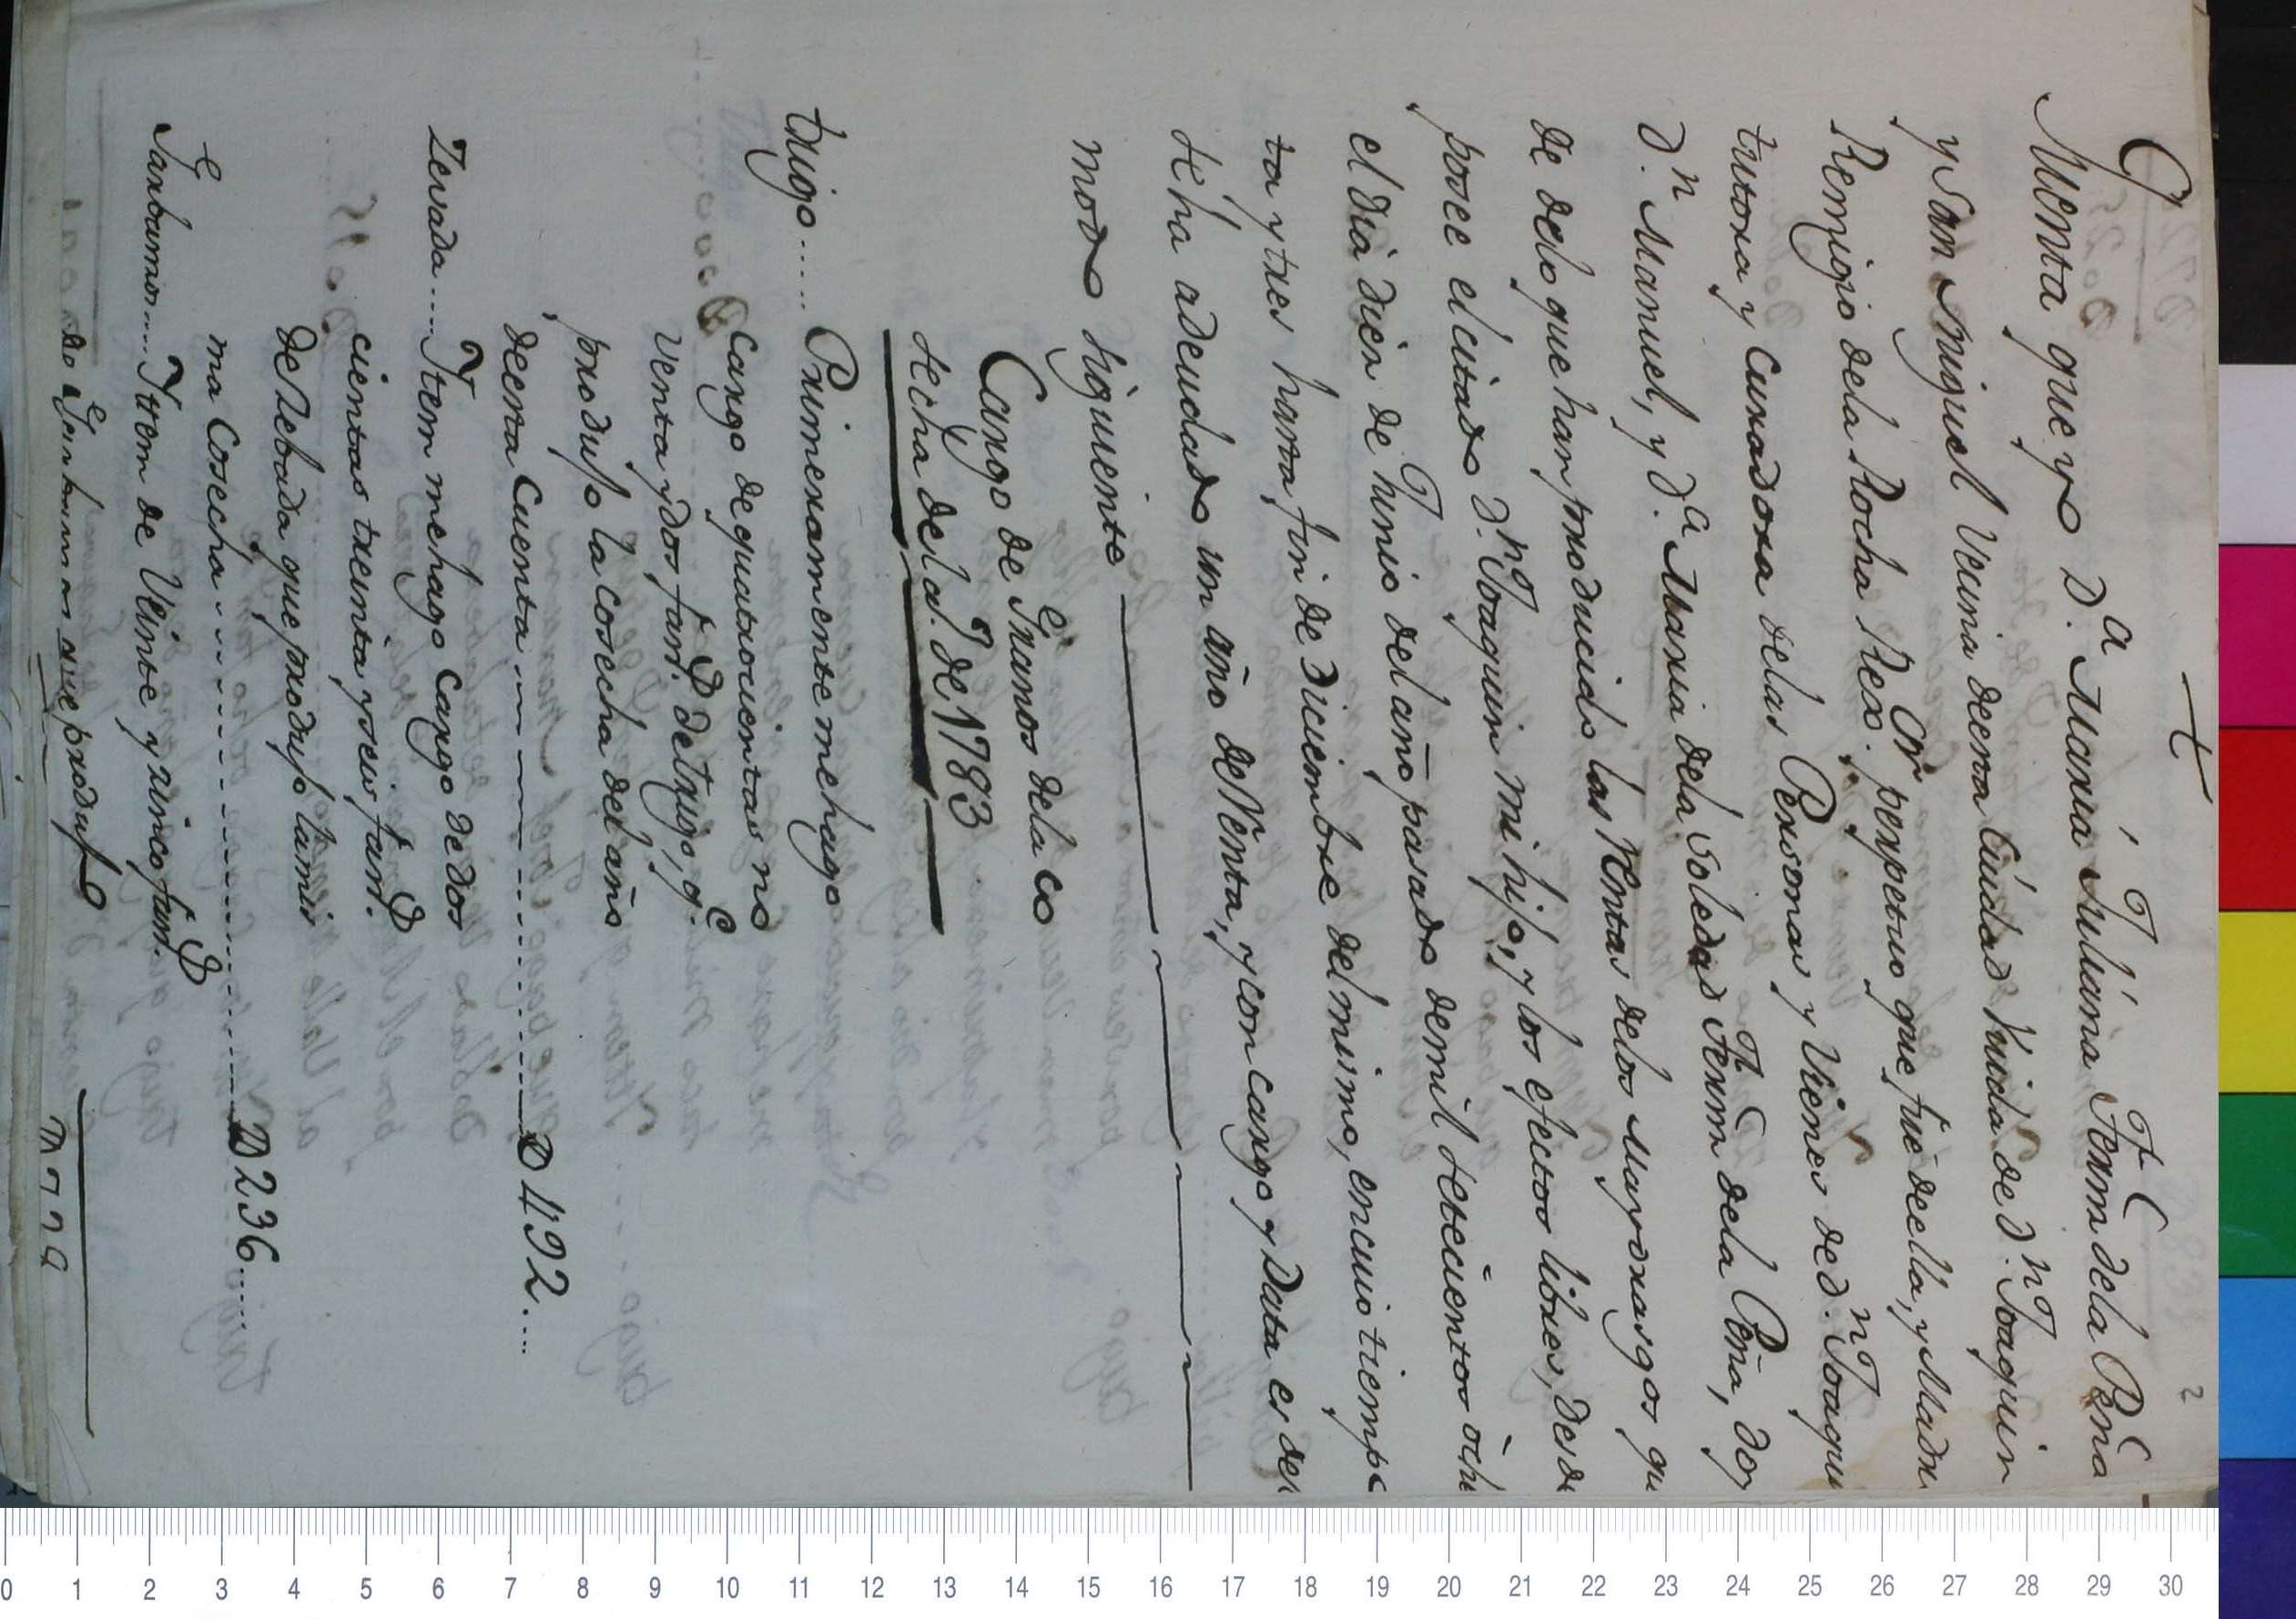 †
2
Cuenta que yo D.ª Maria Juliana Fexnz dela Peña
y San Miguel Vecina deesta Ciudad Viuda de d.n Joaquin
Remigio dela Rocha Rexo.r perpetuo que fué deella, y Madre
tutora y Curadora delas Personas y Vienes de d.n Joaqui
d.n Manuel, y d.ª Maria dela Soledad Fexnz dela Peña, doy
de delo que han producido las Rentas delos Mayorasgos qu
posee el citado d.n Joaquin mi hijo, y los efectos libres, desde
el dia diez de Junio del año pasado demil setecientos oche
ta y tres hasta fin de Diciembre del mismo, encuio tiempo
se ha adeudado un año de Renta, y con cargo y Data es del
modo siguiente
Cargo de Granos dela co
secha dela.. de 1783
trigo..... Primeramente me hago
cargo de quatrocientas no
venta y dos fan.s de trigo, q.e
produjo la cosecha del año
deesta Cuenta ........ D 492....
Zevada.... Ytem mehago cargo de dos
cientas treinta y seis fan.s
de Zebada que produjo lamis
ma Cosecha ........ D 236......
Garbanzos.... Yttem de Veinte y zinco fan.s
de Garbanzos que produjo
0 1 2 3 4 5 6 7 8 9 10 11 12 13 14 15 16 17 18 19 20 21 22 23 24 25 26 27 28 29 30